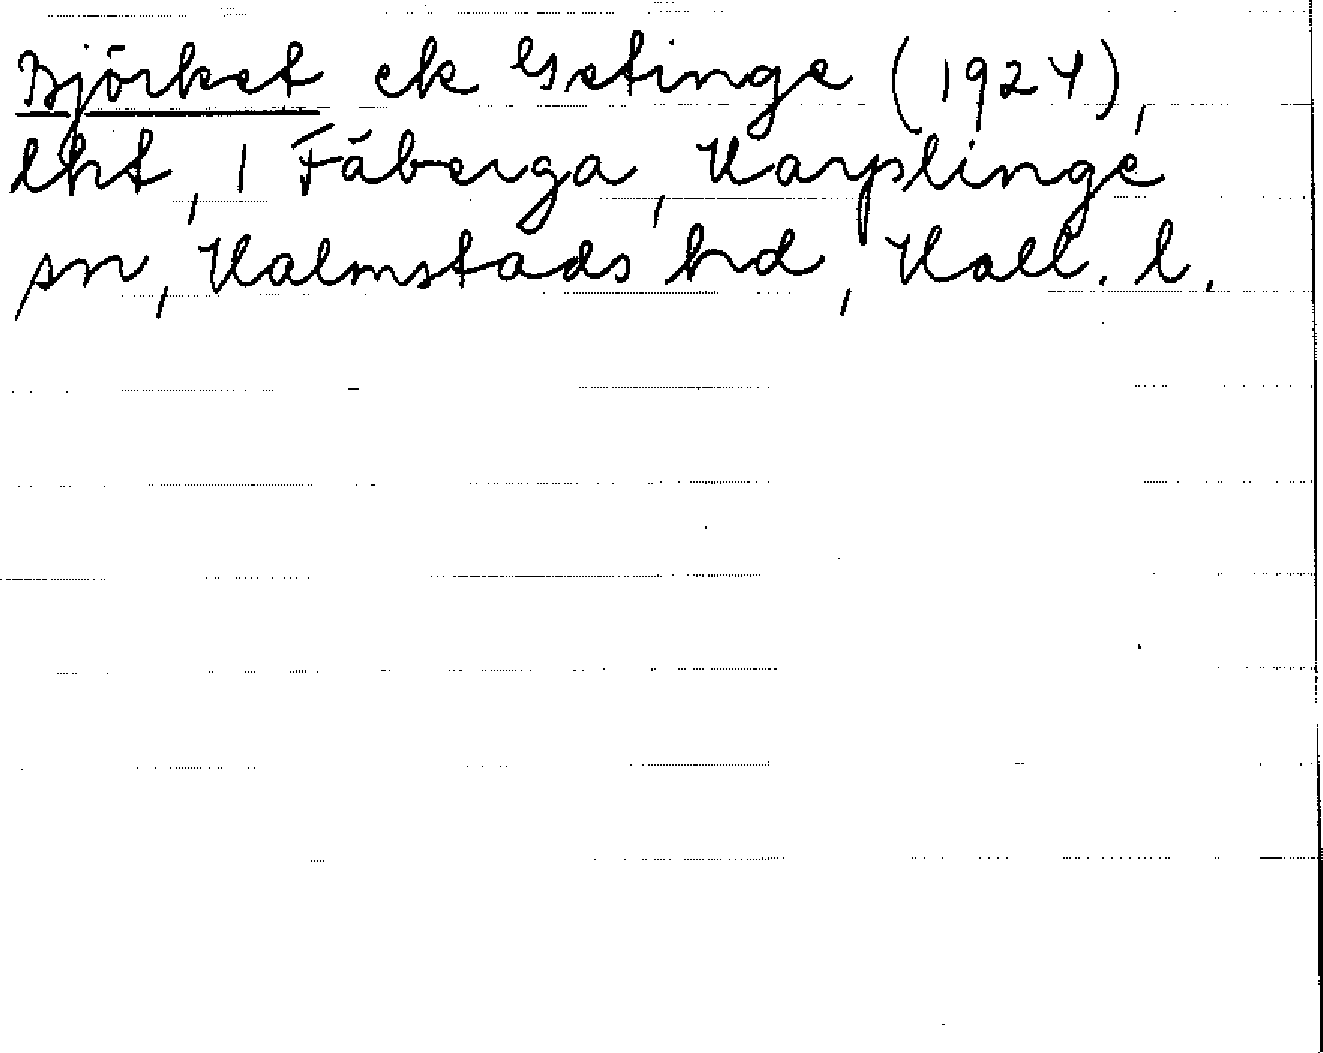 Björket ek Getinge (1924),
lht, 1 Fäberga, Harplinge
sn, Halmstads hd, Hall. l.